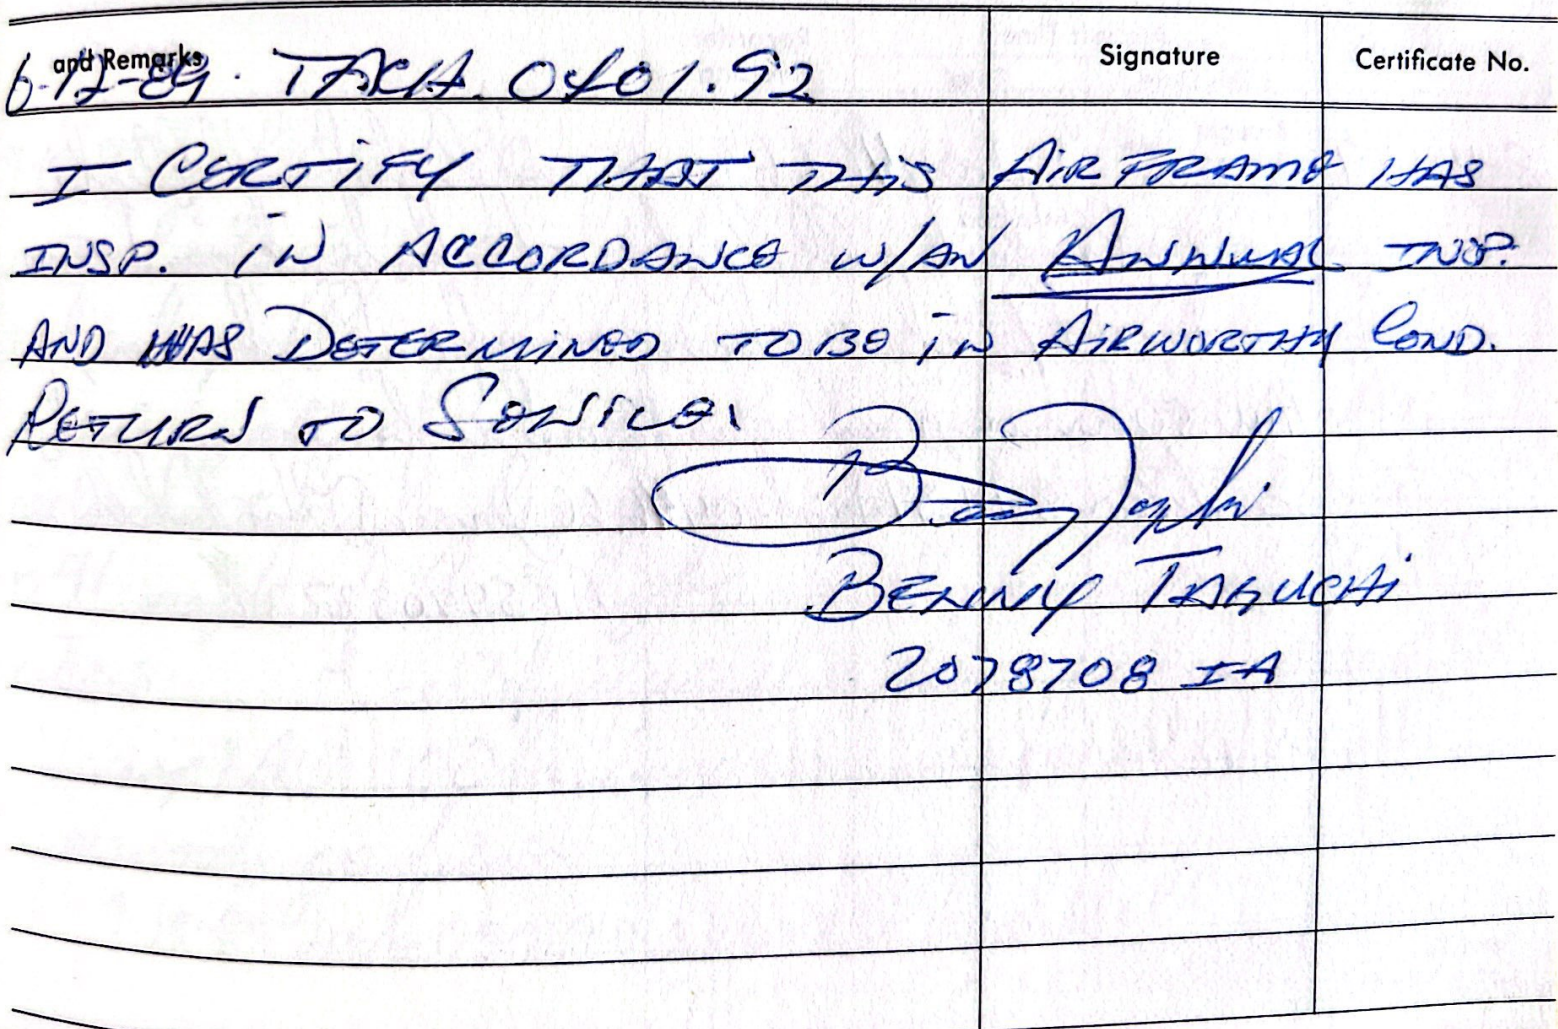 and Remarks Signature Certificate No.
6-12-89. TACH. 0401.92
I CERTIFY THAT THIS AIRFRAME HAS
INSP. IN ACCORDANCE W/AN ANNUAL INSP.
AND WAS DETERMINED TO BE IN AIRWORTHY COND.
RETURN TO SERVICE.
Benny Taguchi
BENNY TAGUCHI
2078708 IA